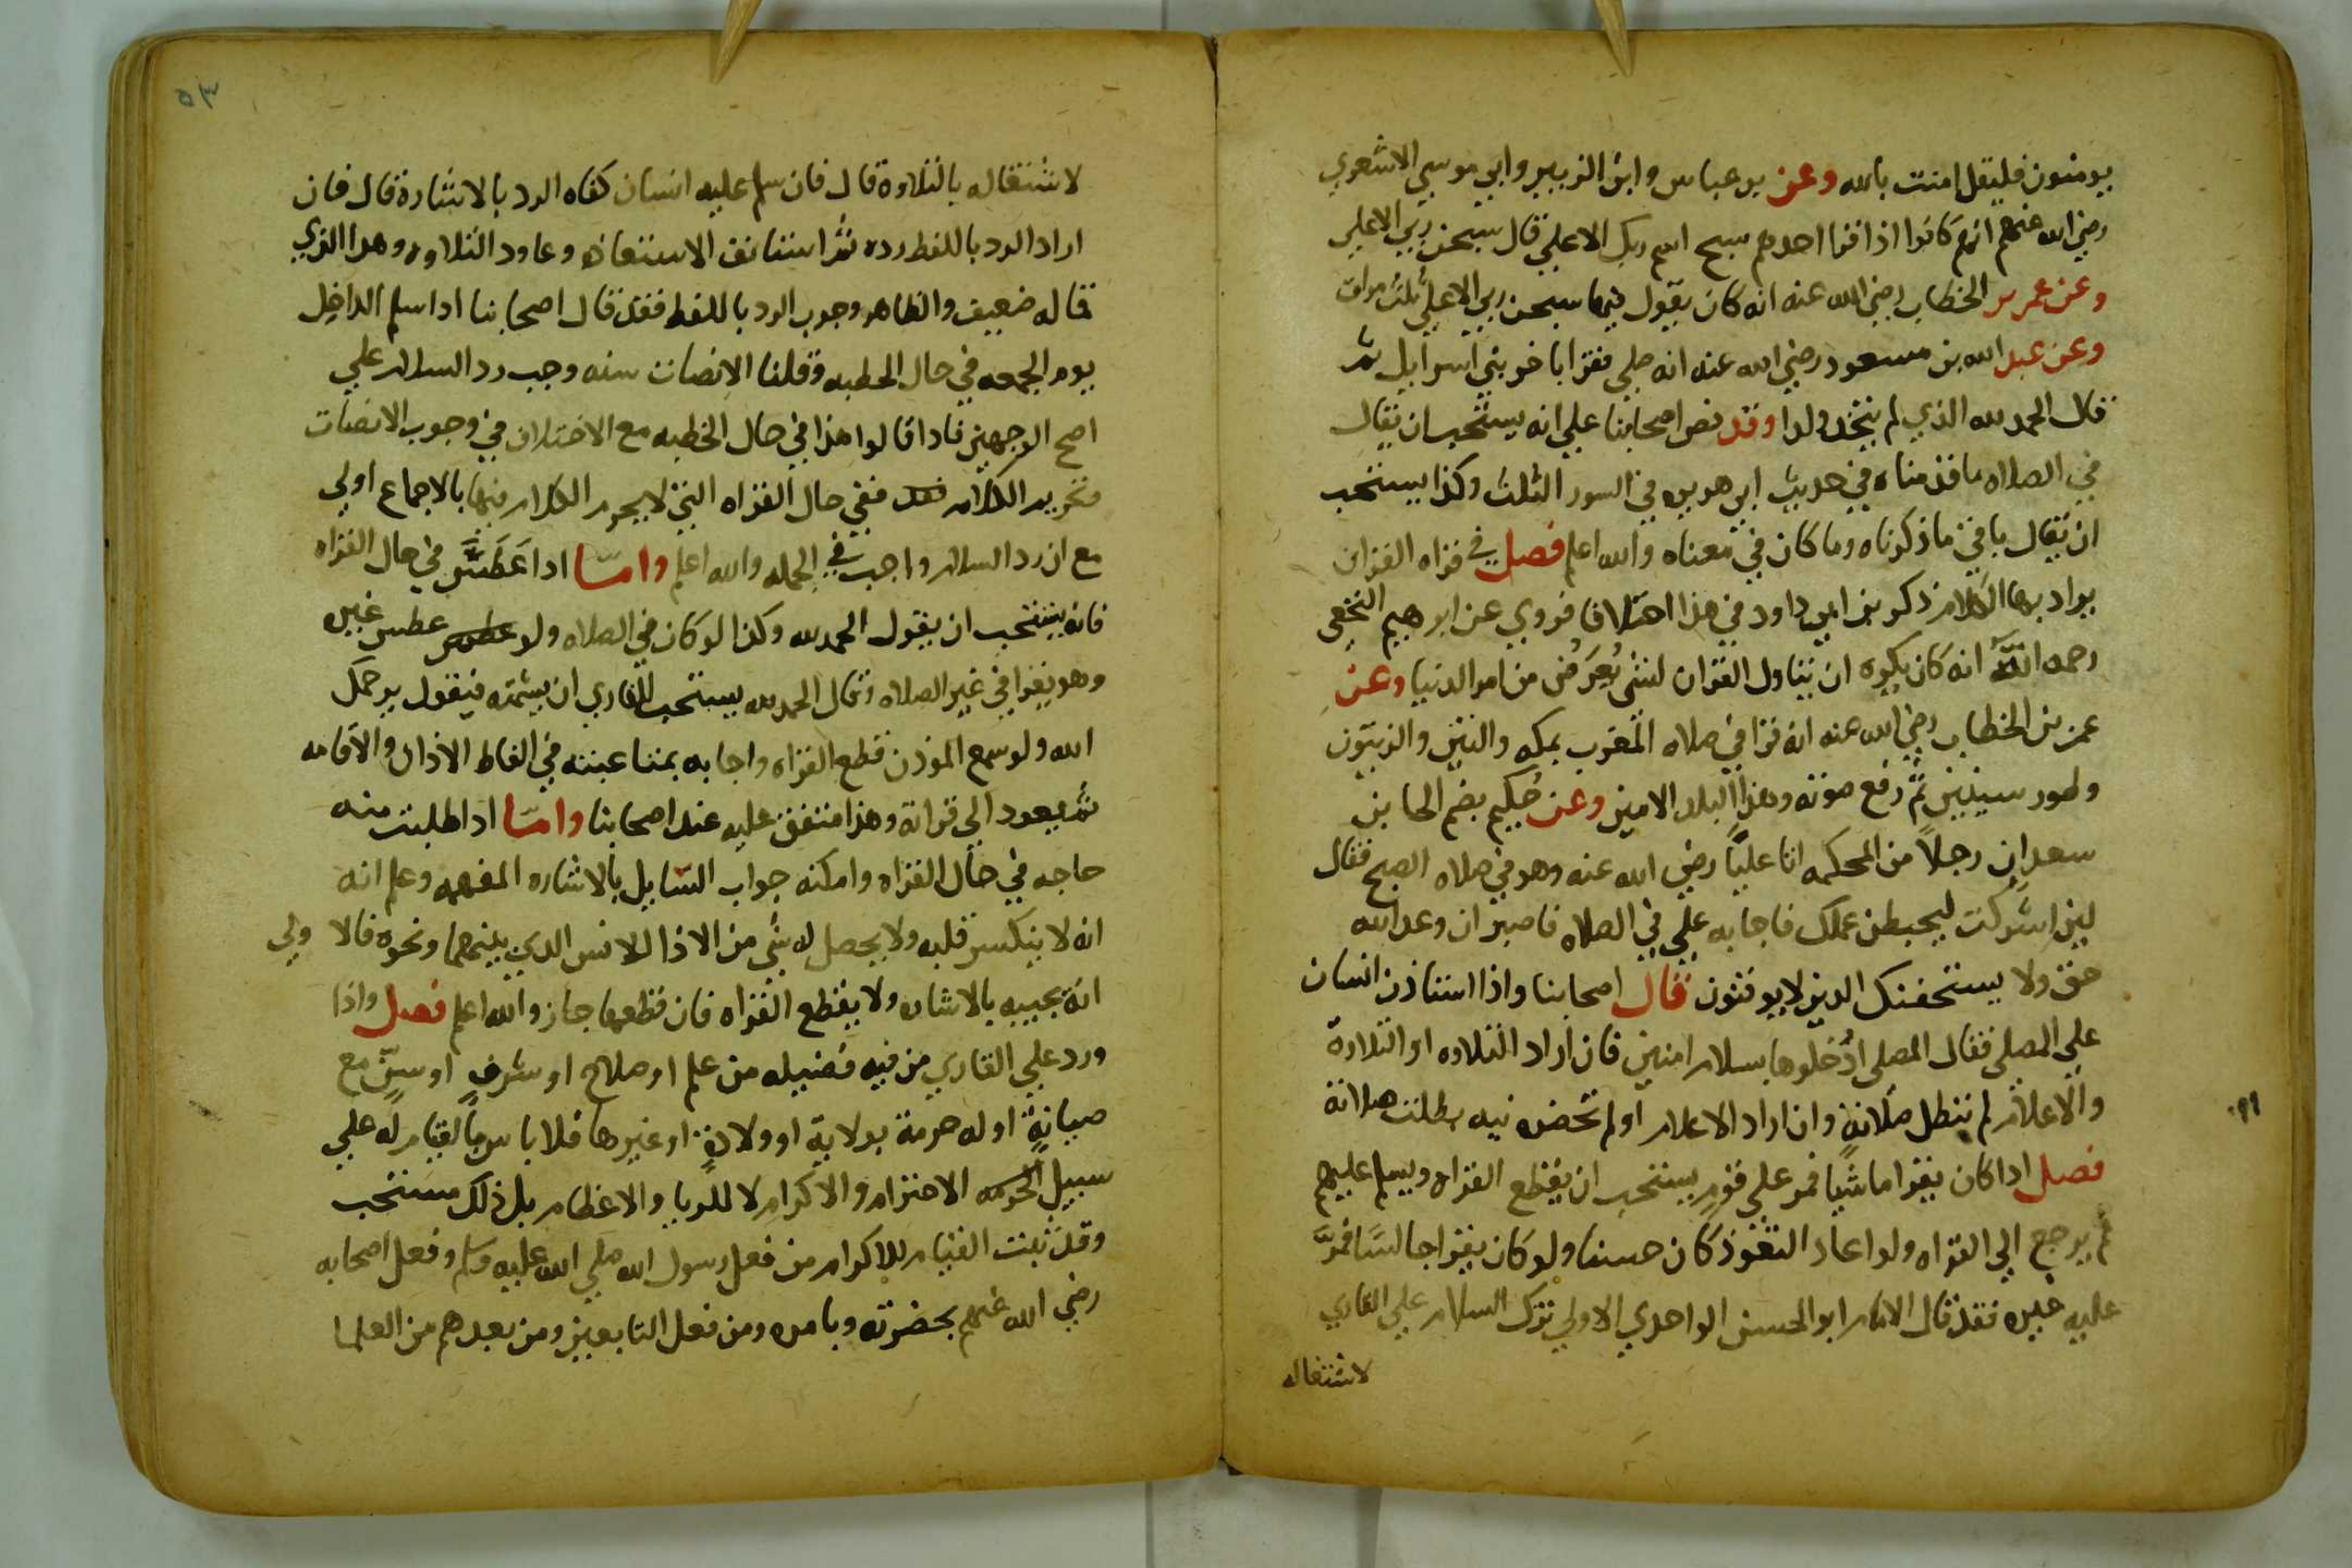 يومنون فليقل امنت بالله وعن بن عباس وابن الزبير وابي موسي الاشعري
رضي الله عنهم انهم كانوا اذا قرا احدهم سبح اسم ربك الاعلي قال سبحن ربي الاعلي
وعن عمر بن الخطاب رضي الله عنه انه كان يقول فيها سبحن ربي الاعلي ثلث مرات
وعن عبد الله بن مسعود رضي الله عنه انه صلي فقرا باخر بني اسرايل ثم
قال الحمد لله الذي لم يتخذ ولدا وقد نص اصحابنا علي انه يستحب ان يقال
في الصلاه ما قدمناه في حديث ابي هريره في السور الثلث وكذا يستحب
ان يقال باقي ما ذكرناه وما كان في معناه والله اعلم فصل في قراه القران
يراد بها الكلام ذكر بن ابي داود في هذا اختلافا فروي عن ابرهيم النخعي
رحمه الله انه كان يكره ان يتاول القران لشي يعرض من امر الدنيا وعن
عمر بن الخطاب رضي الله عنه انه قرا في صلاه المغرب بمكه والتين والزيتون
وطور سينين ثم رفع صوته وهذا البلد الامين وعن حكيم بضم الحا بن
سعد ان رجلا من المحكمه اتا عليا رضي الله عنه وهو في صلاه الصبح فقال
لين اشركت ليحبطن عملك فاجابه علي في الصلاه فاصبر ان وعد الله
حق ولا يستخفنك الذين لا يوقنون قال اصحابنا واذا استاذن انسان
علي المصلي فقال المصلي ادخلوها بسلام امنين فان اراد التلاوه او التلاوة
والاعلام لم تبطل صلاته وان اراد الاعلام او لم تحضره نيه بطلت صلاته
فصل اذا كان يقرا ماشيا فمر علي قوم يستحب ان يقطع القراه ويسلم عليهم
ثم يرجع الي القراه ولو اعاد التعوذ كان حسنا ولو كان يقرا جالسا فمر
عليه غيره فقد قال الامام ابو الحسن الواحدي الاولي ترك السلام علي القاري
لاشتغاله
٥٣
لاشتغاله بالتلاوة قال فان سلم عليه انسان كفاه الرد بالاشارة قال فان
اراد الرد باللفظ رده ثم استانف الاستعاذه وعاود التلاوه وهذا الذي
قاله ضعيف والظاهر وجوب الرد باللفظ فقد قال اصحابنا اذا سلم الداخل
يوم الجمعه في حال الخطبه وقلنا الانصات سنه وجب رد السلام علي
اصح الوجهين فاذا قالوا هذا في حال الخطبه مع الاختلاف في وجوب الانصات
وتحريم الكلام ففي حال القراه التي لا يحرم الكلام فيها بالاجماع اولي
مع ان رد السلام واجب في الجمله والله اعلم واما اذا عطس في حال القراه
فانه يستحب ان يقول الحمد لله وكذا لو كان في الصلاه ولو عطس عطس غيره
وهو يقرا في غير الصلاه وقال الحمد لله يستحب للقاري ان يشمته فيقول يرحمك
الله ولو سمع الموذن قطع القراه واجابه بمتابعته في الفاظ الاذان والاقامه
ثم يعود الي قراته وهذا متفق عليه عند اصحابنا واما اذا طلبت منه
حاجه في حال القراه وامكنه جواب السايل بالاشاره المفهمه وعلم انه
انه لا ينكسر قلبه ولا يحصل له شي من الاذا للانس الذي بينهما ونحوه فالاولي
انه يجيبه بالاشاره ولا يقطع القراه فان قطعها جاز والله اعلم فصل واذا
ورد علي القاري من فيه فضيله من علم او صلاح او شرف او سن مع
صيانة او له حرمة بولاية او ولادة او غيرها فلا باس بالقيام له علي
سبيل الحرمه الاحترام والاكرام لا للريا والاعظام بل ذلك مستحب
وقد ثبت القيام للاكرام من فعل رسول الله صلي الله عليه وسلم وفعل اصحابه
رضي الله عنهم بحضرته وبامره ومن فعل التابعين ومن بعدهم من العلما